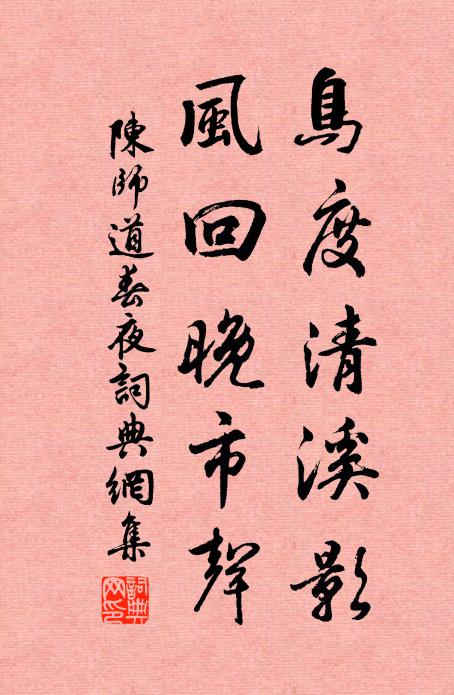 鳥度清溪影
風回晚市聲
陳師道春夜詞典網集
詞典網印